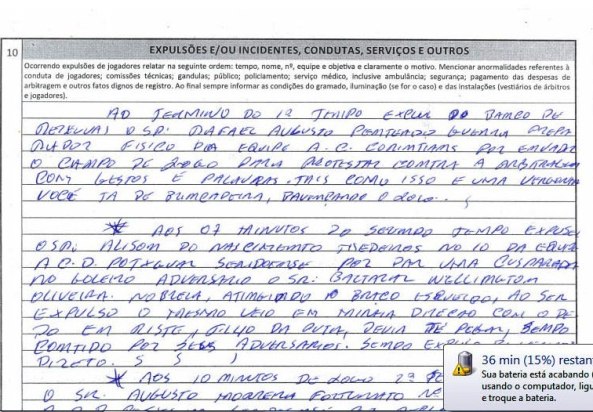 10
EXPULSÕES E/OU INCIDENTES, CONDUTAS, SERVIÇOS E OUTROS
Ocorrendo expulsões de jogadores relatar na seguinte ordem: tempo, nome, nº, equipe e objetiva e claramente o motivo. Mencionar anormalidades referentes à
conduta de jogadores; comissões técnicas; gandulas; público; policiamento; serviço médico, inclusive ambulância; segurança; pagamento das despesas de
arbitragem e outros fatos dignos de registro. Ao final sempre informar as condições do gramado, iluminação (se for o caso) e das instalações (vestiários de árbitros
e jogadores).
AO TERMINO DO 1º TEMPO EXPULSEI DO BANCO DE
O SR. RAFAEL AUGUSTO GUERRA PREPA
RADOR FISICO DA EQUIPE A.C. CORINTIANS POR INVADIR
O CAMPO DE JOGO PARA PROTESTAR CONTRA A ARBITRAGEM
COM GESTOS E PALAVRAS TAIS COMO ISSO E UMA VERGONHA
VOCÊ TA DE BRINCADEIRA, O JOGO.
* AOS 07 MINUTOS DO SEGUNDO TEMPO EXPULSEI
O SR. ALISOM DO NASCIMENTO MEDEIROS NO 10 DA EQUIPE
A.C.D. POTIGUAR SERIDOENSE POR DAR UMA CUSPARADA
NO GOLEIRO ADVERSARIO O SR: BALTAZAR WELLINGTOM
OLIVEIRA NOBREGA, ATINGINDO O BRAÇO ESQUERDO, AO SER
EXPULSO O MESMO VEIO EM MINHA DIREÇÃO COM O DE
DO EM RISTE, FILHO DA PUTA, DEVIA TE PEGAR, SENDO
CONTIDO POR SEUS ADVERSARIOS. SENDO EXPULSO
DIRETO.
* AOS 10 MINUTOS DE JOGO 2º
O SR. AUGUSTO MOREIRA FORTUNATO
36 min (15%) restan
Sua bateria está acabando
usando o computador, ligu
e troque a bateria.